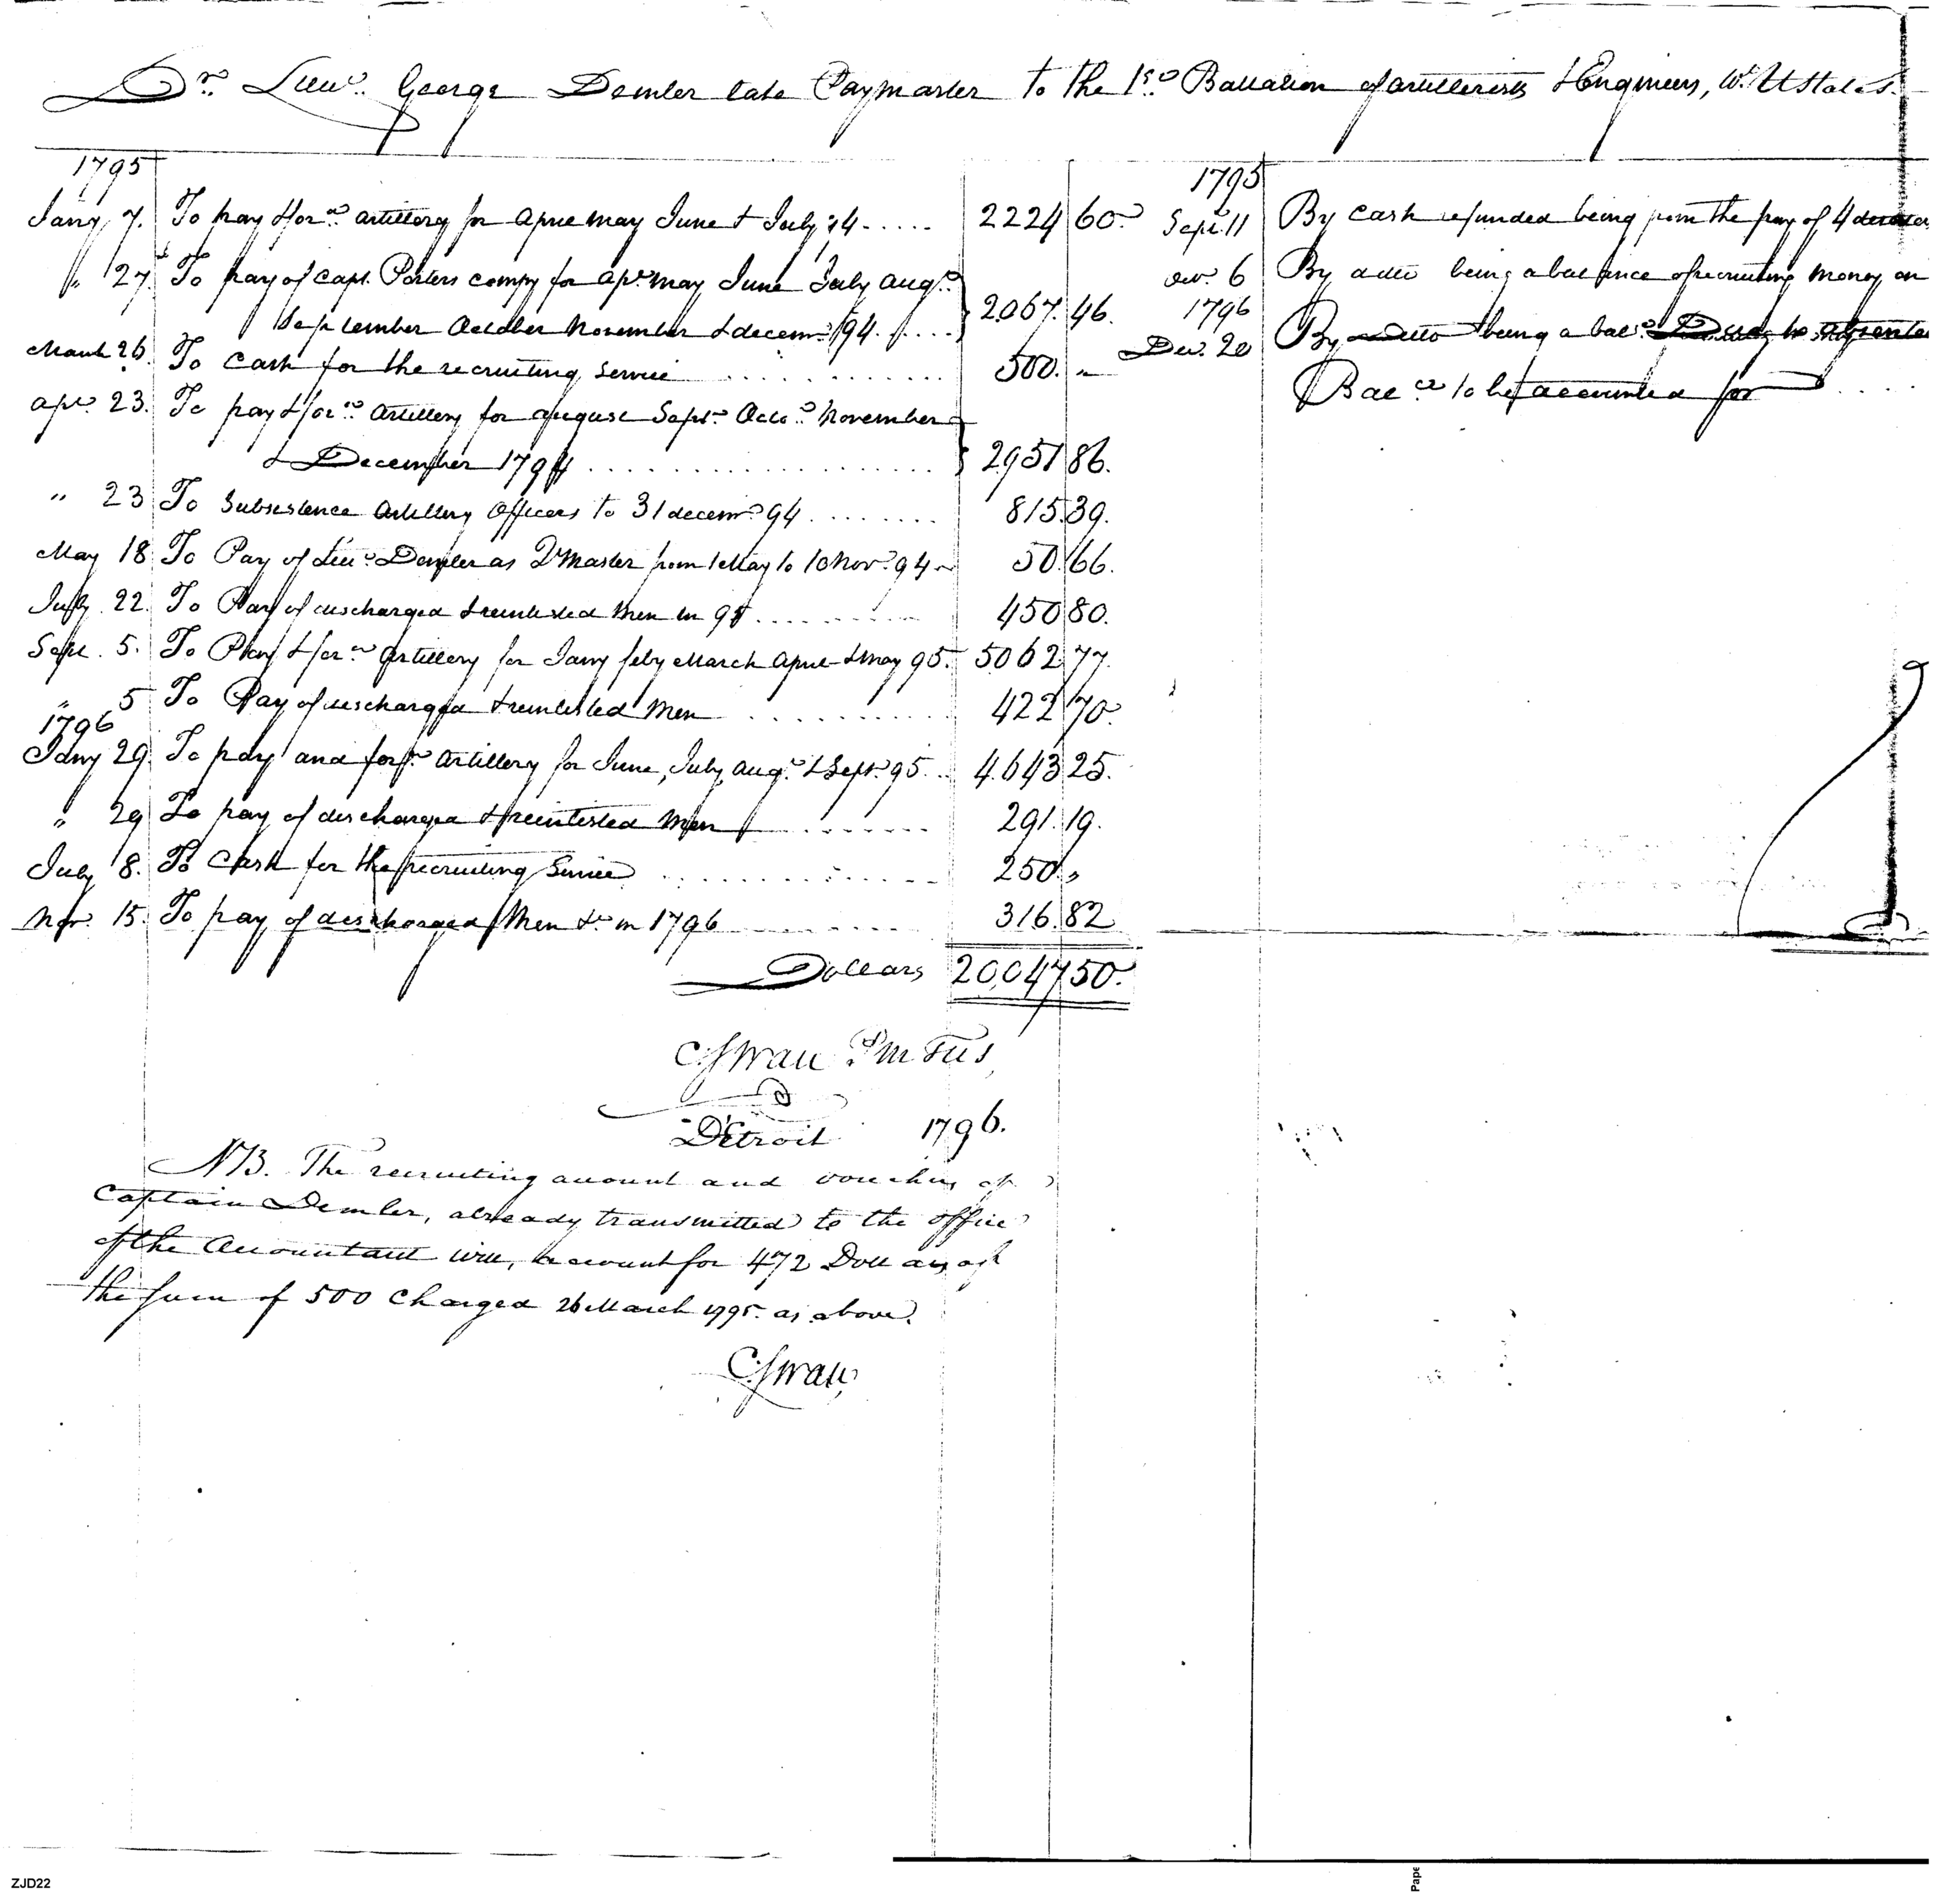 Dr. Lieut. George Demler late Paymaster to the 1st Battalion of artillerists & Engineers, Wt. UStates.
1795
Jany 7. To pay & forge artillery for April may June & July 94 ..... 2224 60.
" 27. To pay of Capt. Porters compy for apl. may June July augt.
September October November & decemr. 94. .... 2067. 46.
March 26. To Cash for the recruiting Service ............ 500. "
apl. 23. To pay & forge artillery for august Sept. Octo. November
& December 1794 .................. 2951 86.
" 23 To Subsistence Artillery Officers to 31 decemr. 94 ........ 815.39.
May 18 To Pay of Lieut. Demler as Qr Master from 1 May to 10 Novr. 94 50.66.
July. 22. To Pay of discharged & reinlisted Men in 95 .......... 450 80.
Sept. 5. To Pay & forge artillery for Jany feby March April & May 95. 5062 77.
" 5 To Pay of discharged & reinlisted Men .......... 422 70.
1796
Jany 29. To pay and forge artillery for June, July, augt. & Sept. 95. .. 4.643 25.
" 29 To pay of discharged & reinlisted Men ....... 291. 19.
July 8. To Cash for the recruiting Service ............ 250. "
Nov. 15. To pay of discharged Men &c in 1796 .......... 316.82
Dollars 20,047 50.
1795
Sept. 11 By Cash refunded being from the pay of 4
6 By ditto being a ballance of recruiting money on
1796
Dec. 20 By Ditto being a bal.
Balce. to be accounted for ....
C Swan P M T U S
Detroit 1796.
NB. The recruiting account and vouchers of
Captain Demler, already transmitted to the office
of the Accountant will, account for 472 Dollars of
the sum of 500 Charged 26 March 1795. as above.
C Swan
ZJD22
Pape